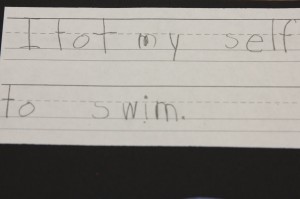 I tot my self
to swim.